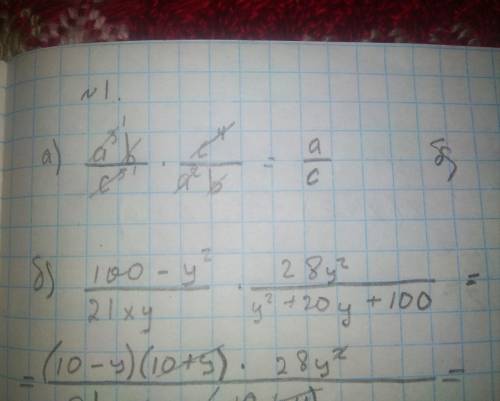 №1.
а) a³b/c⁵ · c⁴/a²b = a/c
б) 100 - y²/21xy · 28y²/y² + 20y + 100 =
= (10 - y)(10 + y) · 28y² =